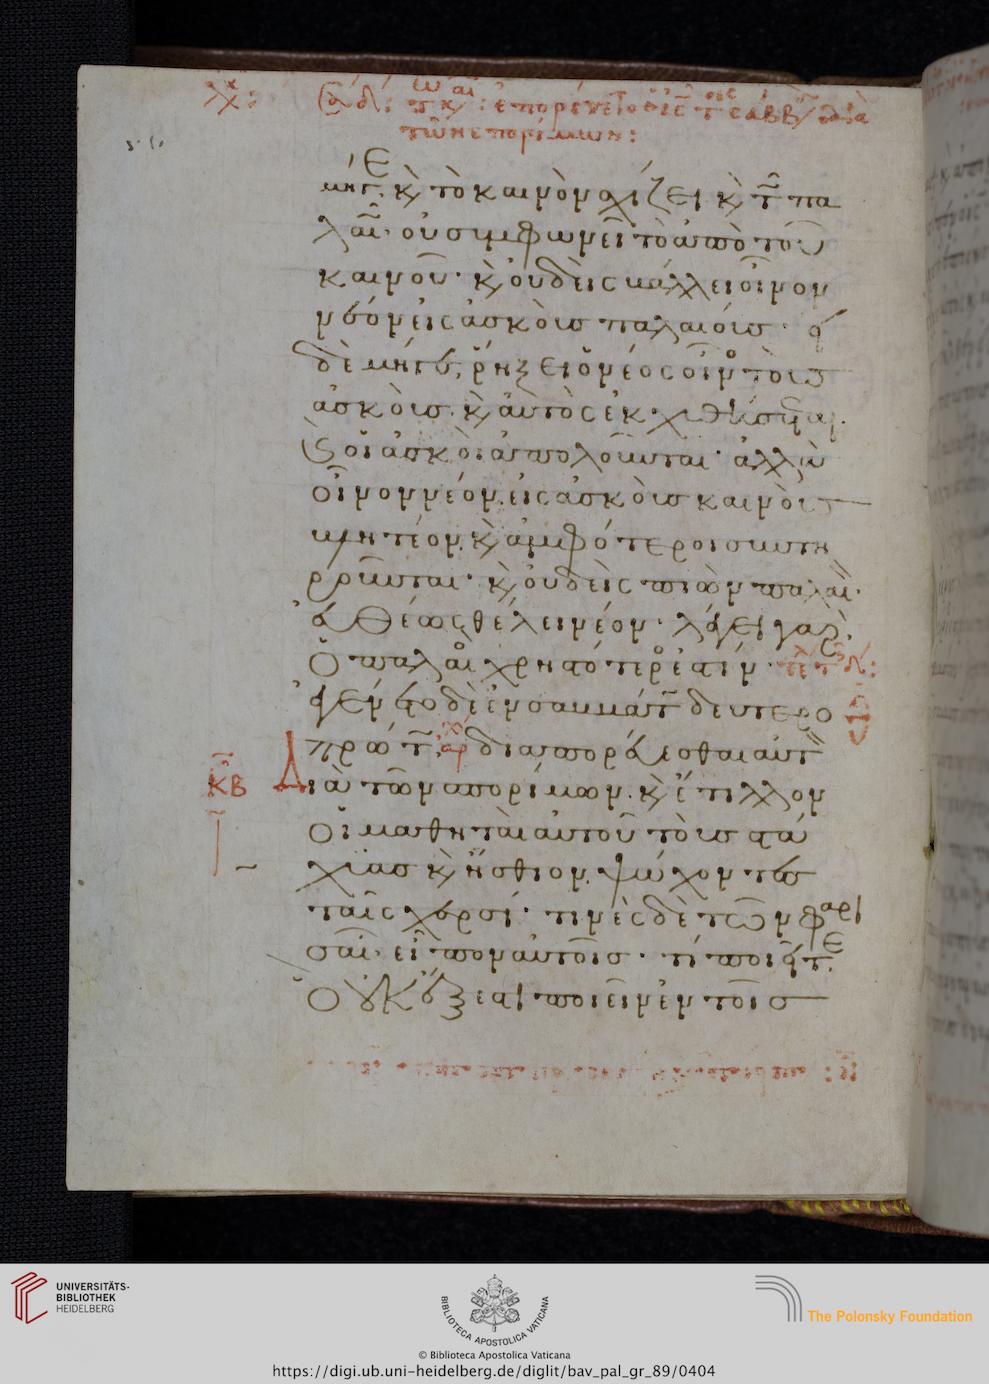 τῶν σπορίμων:
μήγε κ(αὶ) τὸ καινὸν σχίζει κ(αὶ) τ(ῶ) πα
λαι(ῶ) οὐ συμφωνεῖ τὸ ἀπὸ τοῦ
καινοῦ· κ(αὶ) οὐδεὶς βάλλει οἶνον
νέον εἰς ἀσκοὺς παλαιούς· εἰ
δὲ μήγε, ῥήξει ὁ νέος οἶνο(ς) τοὺς
ἀσκοὺς. κ(αὶ) αὐτὸς ἐκχυθήσεται.
κ(αὶ) οἱ ἀσκοὶ ἀπολοῦνται· ἀλλὰ
οἶνον νέον εἰς ἀσκοὺς καινοὺς
βλητέον, κ(αὶ) ἀμφότεροι συντη
ροῦνται· κ(αὶ) οὐδεὶς πιὼν παλαι(ὸν)
εὐθέως θέλει νέον· λέγει γάρ,
ὁ παλαιὸ(ς) χρηστότερό(ς) ἐστιν·
ἐγένετο δὲ ἐν σαββάτ(ω) δευτερο
πρώτ(ω) διαπορεύεσθαι αὐτ(ὸν)
κβ διὰ τῶν σπορίμων. κ(αὶ) ἔτιλλον
οἱ μαθηταὶ αὐτοῦ τοὺς στά
χυας κ(αὶ) ἤσθιον, ψώχοντες
ταῖς χερσί· τινὲς δὲ τῶν φαρι
σαί(ων) εἶπον αὐτοῖς· τί ποιεῖτε
ὃ οὐκ ἔξεστι ποιεῖν ἐν τοῖς
UNIVERSITÄTS-
BIBLIOTHEK
HEIDELBERG
BIBLIOTECA APOSTOLICA VATICANA
The Polonsky Foundation
© Biblioteca Apostolica Vaticana
https://digi.ub.uni-heidelberg.de/diglit/bav_pal_gr_89/0404